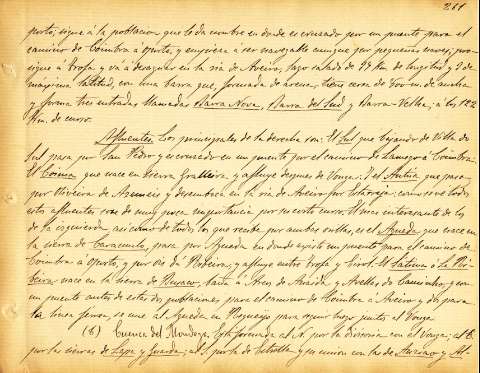 261
porto, sigue á la poblacion que le da nombre en donde es cruzado por un puente para el
camino de Coimbra á Oporto, y empieza á ser navegable aunque por pequeñas naves; pro-
sigue á Trofa y vá á desaguar en la ria de Aveiro, lago salado de 37 Km. de longitud y 2 de
máxima latitud, con una barra que, formada de arena, tiene cerca de 400 m. de ancha
y forma tres entradas llamadas Barra Nova, Barra del Sud y Barra-Velha; á los 122
Km. de curso.
Afluentes. Los principales de la derecha son: El Sul que bajando de Villa do
Sul pasa por San Pedro y es cruzado en un puente por el camino de Lamego á Coimbra.
El Caima que nace en Sierra Gralleira, y afluye despues de Vouga; y el Antua que pasa
por Oliveira de Azemeis y desemboca en la ria de Aveiro por Estarreja: como se ve todos
estos afluentes son de muy poca importancia por su corto curso. El mas interesante de los
de la izquierda, asi como de todos los que recibe por ambas orillas, es el Agueda que nace en
la sierra de Caramulo, pasa por Agueda en donde existe un puente para el camino de
Coimbra á Oporto, y por ria de Pedreira; y afluye entre Trofa y Eirol. El Sátima ó la Ri-
beira nace en la sierra de Busaco, baña á Arcos de Anadia y Avellas do Caminho, y con
un puente antes de estas dos poblaciones para el camino de Coimbra á Aveiro y otro para
la linea ferrea, se une al Agueda en Requeixo para seguir luego juntos al Vouga.
(6) Cuenca del Mondego. Está formada al N. por la divisoria con el Vouga; al E.
por las sierras de Lapa y Guarda; al S. por la de Estrella y su union con la de Anciao y Al-